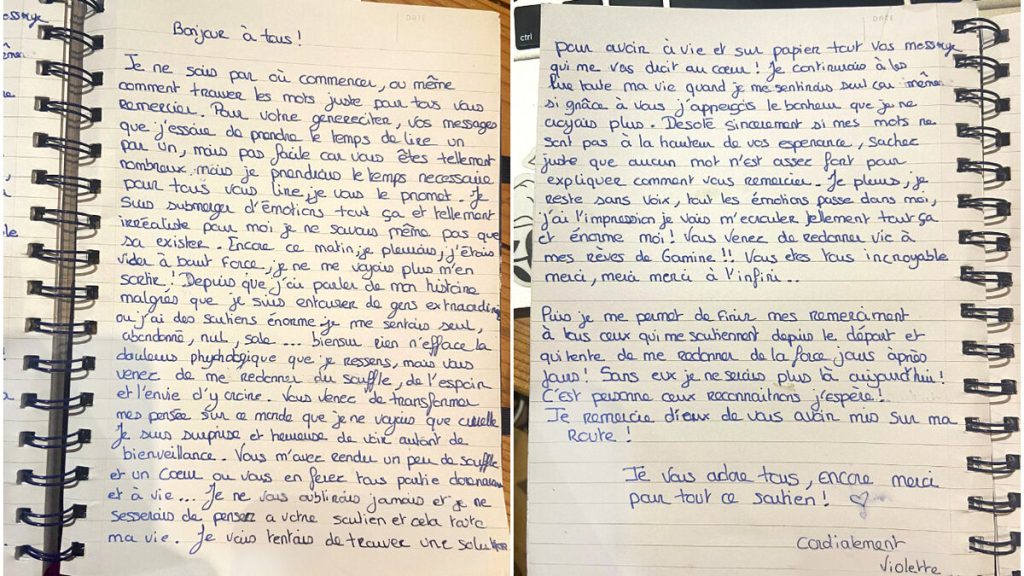 Bonjour à tous !
Je ne sais par où commencer, ou même
comment trouver les mots juste pour tous vous
Remercier. Pour votre genereciter, vos messages
que j'essaie de prendre le temps de lire un
par un, mais pas facile car vous êtes tellement
nombreux mais je prendrais le temps necessaire
pour tous vous lire, je vous le promet. Je
suis submerger d'émotions tout ça et tellement
irréaliste pour moi je ne savais même pas que
sa exister. Encore ce matin je pleurais, j'étais
vider à bout force, je ne me voyais plus m'en
sortir ! Depuis que j'ai parler de mon histoire
malgrés que je suis entourer de gens extraordin
ou j'ai des soutiens énorme je me sentais seul,
abandonné, nul, sale .... biensur rien n'efface la
douleurs phychologique que je ressens, mais vous
venez de me redonner du souffle, de l'espoir
et l'envie d'y croire. Vous venez de transformer
mes pensée sur ce monde que je ne voyais que cruelle
Je suis surprise et heureuse de voir autant de
bienveillance. Vous m'avez rendu un peu de souffle
et un cœur ou vous en ferez tous partie dorenavant
et à vie... Je ne vous oublirais jamais et je ne
sesserais de penser a votre soutien et cela toute
ma vie. Je vais tentais de trouver une solution
pour avoir à vie et sur papier tout vos message
qui me vos droit au cœur ! Je continuerais à les
lire toute ma vie quand je me sentirais seul car même
si grâce à vous j'aperçois le bonheur que je ne
croyais plus. Desolé sincerement si mes mots ne
sont pas à la hauteur de vos esperance, sachez
juste que aucun mot n'est assez fort pour
expliquer comment vous remercier. Je pleurs, je
reste sans voix, tout les émotions passe dans moi,
j'ai l'impression je vais m'eculer tellement tout ça
et énorme moi ! Vous venez de redonner vie à
mes rêves de Gamine !! Vous etes tous incroyable
merci, merci merci à l'infini...
Puis je me permet de finir mes remerciment
à tous ceux qui me soutiennent depuis le départ et
qui tente de me redonner de la force jours après
jours ! Sans eux je ne serais plus là aujourd'hui !
C'est personne ceux reconnaitrons j'espère !
Je remercie dieux de vous avoir mis sur ma
Route !
Je vous adore tous, encore merci
pour tout ce soutien !
Cordialement
Violette
ctrl